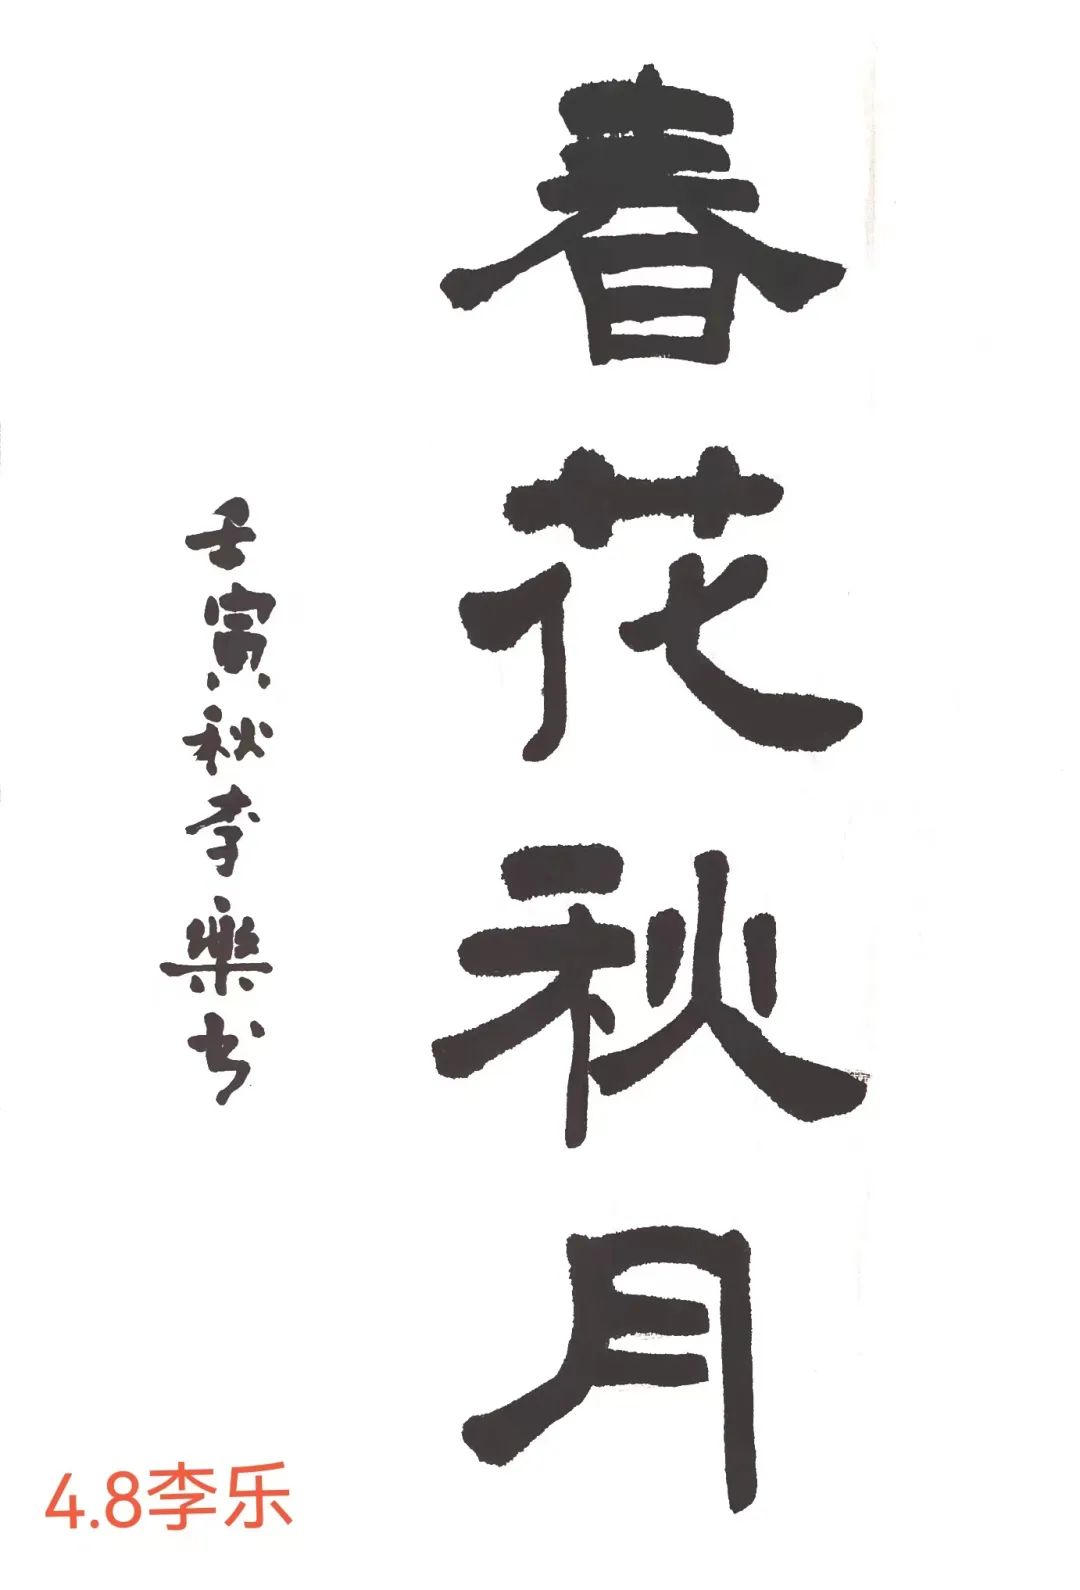 春花秋月
壬寅秋李樂书
4.8李乐